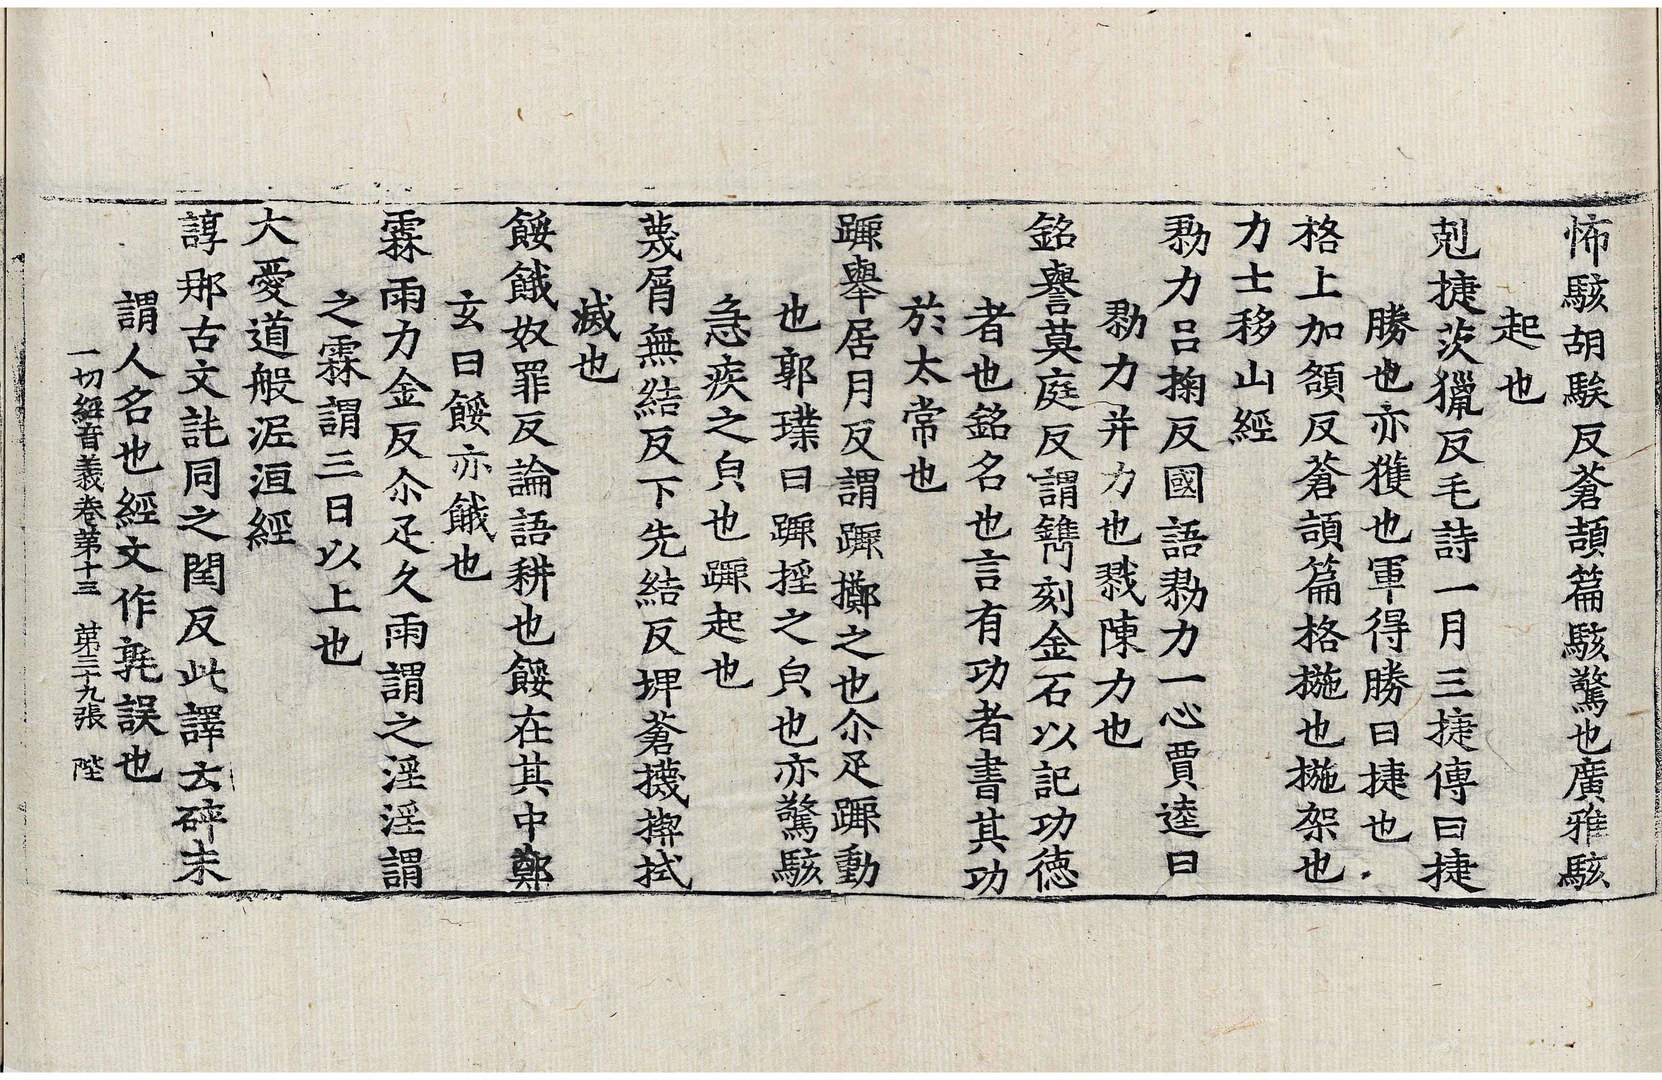 怖駭胡騃反蒼頡篇駭驚也廣雅駭
起也
剋捷茨獵反毛詩一月三捷傳曰捷
勝也亦獲也軍得勝曰捷也
格上加頟反蒼頡篇格㧞也㧞架也
力士移山經
勠力呂掬反國語勠力一心賈逵曰
勠力并力也戮陳力也
銘譽莫庭反謂鐫刻金石以記功德
者也銘名也言有功者書其功
於太常也
躃舉居月反謂躃擲之也尒疋躃動
也郭璞曰躃摇之皃也亦驚駭
急疾之皃也躃起也
蔑屑無結反下先結反埤蒼搣揳拭
滅也
餧餓奴罪反論語耕也餧在其中鄭
玄曰餧亦餓也
霖雨力金反尒疋久雨謂之淫淫謂
之霖謂三日以上也
大愛道般泥洹經
諄那古文訰同之閏反此譯云碎末
謂人名也經文作㲄誤也
一切經音義卷第十三 第三十九張 陛